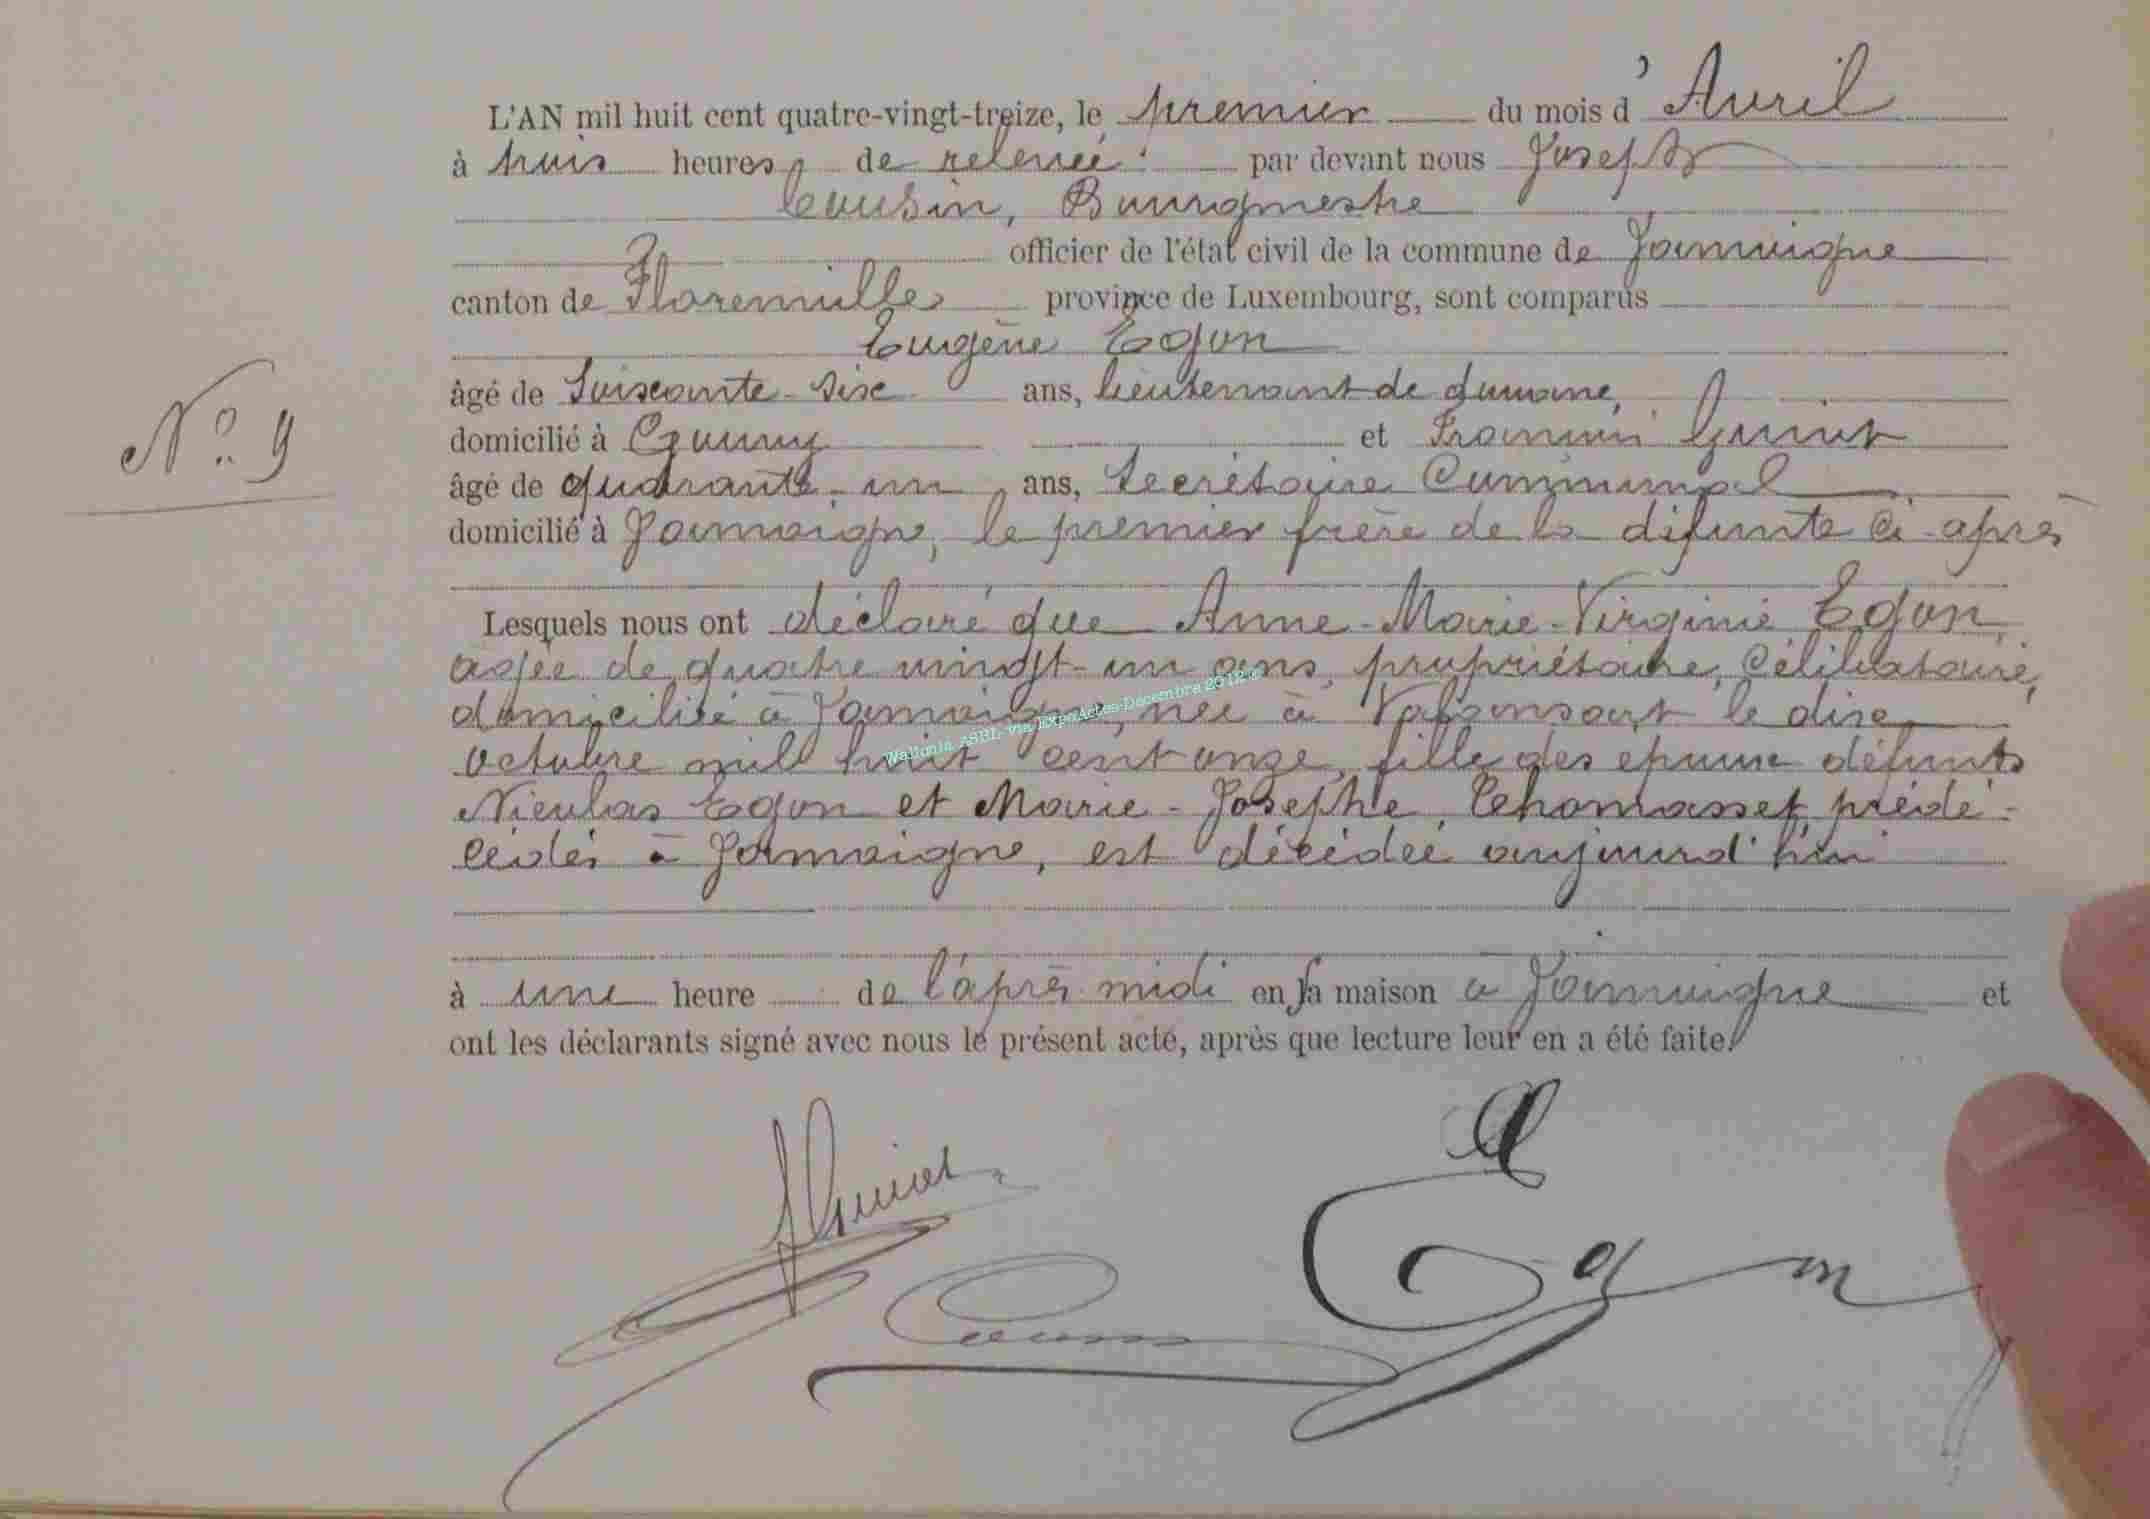 L'AN mil huit cent quatre-vingt-treize, le premier du mois d'Avril
à trois heures, de relevée par devant nous Joseph
Cousin, Bourgmestre
officier de l'état civil de la commune de Jamoigne
canton de Florenville province de Luxembourg, sont comparus
Eugène Egon
âgé de Soixante-six ans, lieutenant de douane,
domicilié à et Guiot
N° 9
âgé de quarante un ans, Secrétaire Communal
domicilié à Jamoigne, le premier frère de la défunte ci-après
Lesquels nous ont déclaré que Anne-Marie-Virginie Egon,
agée de quatre vingt-un ans, propriétaire, Célibataire,
domicilié à Jamoigne, née à Valansart le dix
octobre mil huit cent onze, fille des époux défunts
Nicolas Egon et Marie-Josèphe Thomasset, prédé-
cédés à Jamoigne, est décédée aujourd'hui
Wallonia ASBL via ExpoActes Decembre 2012
à une heure de l'après midi en sa maison à Jamoigne et
ont les déclarants signé avec nous le présent acte, après que lecture leur en a été faite.
Guiot
Cousin
Egon